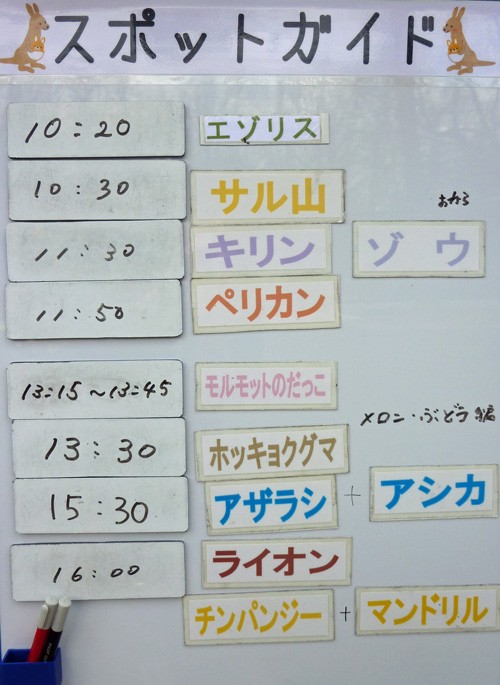 スポットガイド
10:20 エゾリス
10:30 サル山
11:30 キリン ゾウ
11:50 ペリカン
13:15～13:45 モルモットのだっこ
メロン・ぶどう編
13:30 ホッキョクグマ
15:30 アザラシ + アシカ
16:00 ライオン
チンパンジー + マンドリル